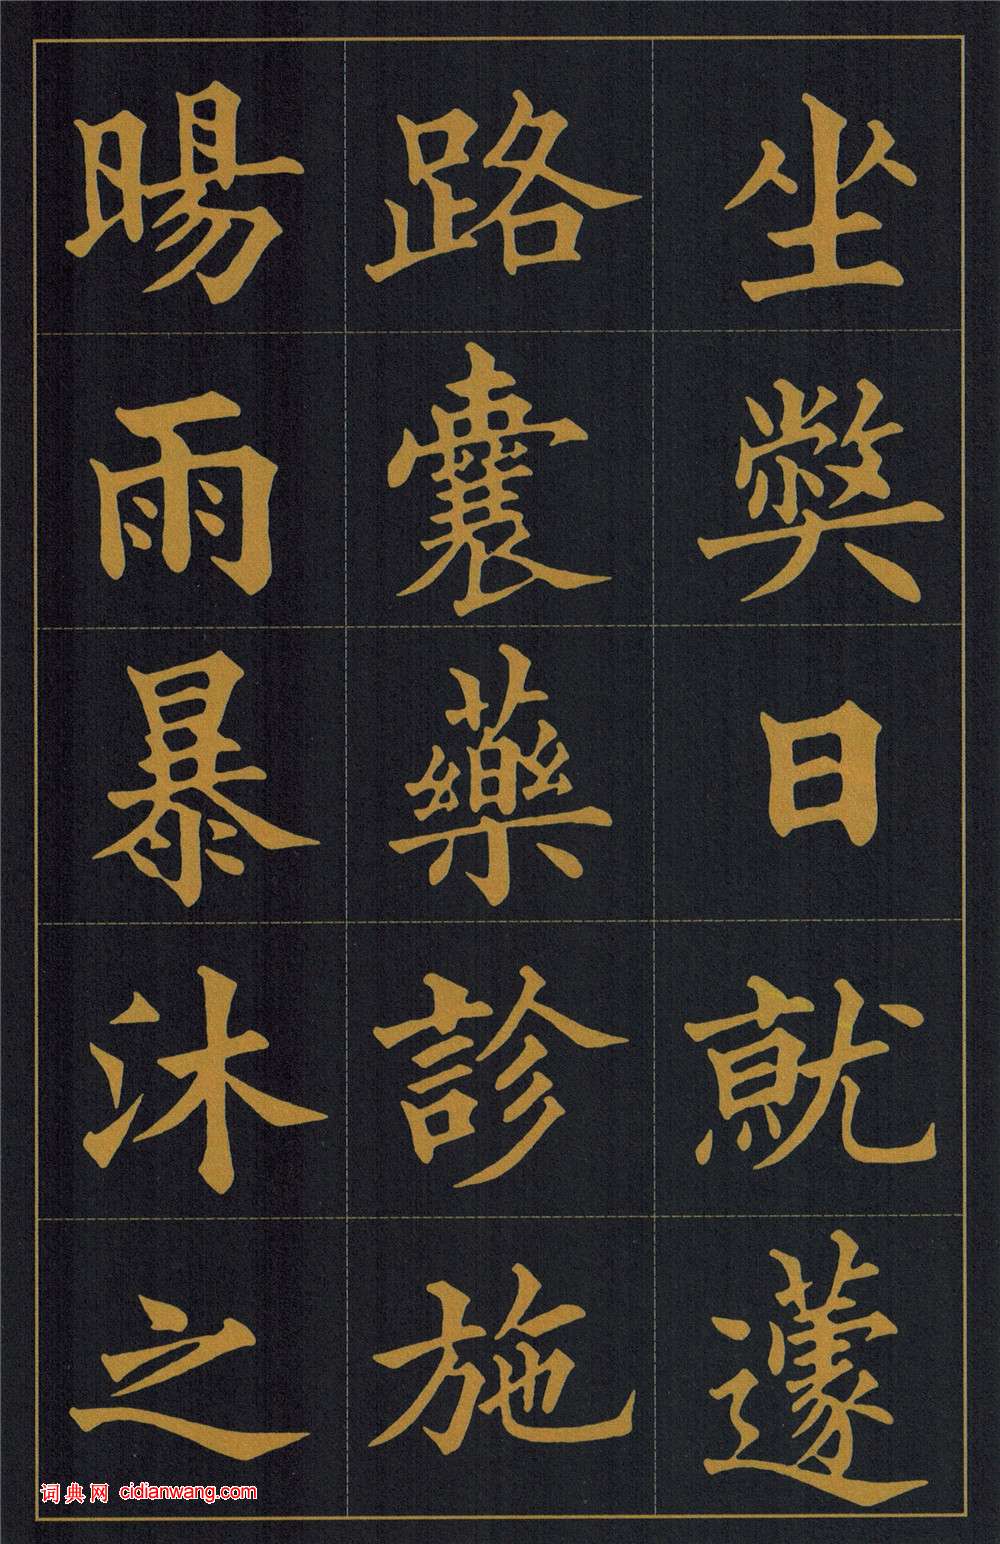 坐獘日就蘧
路囊藥診施
暘雨暴沐之
词典网 cidianwang.com